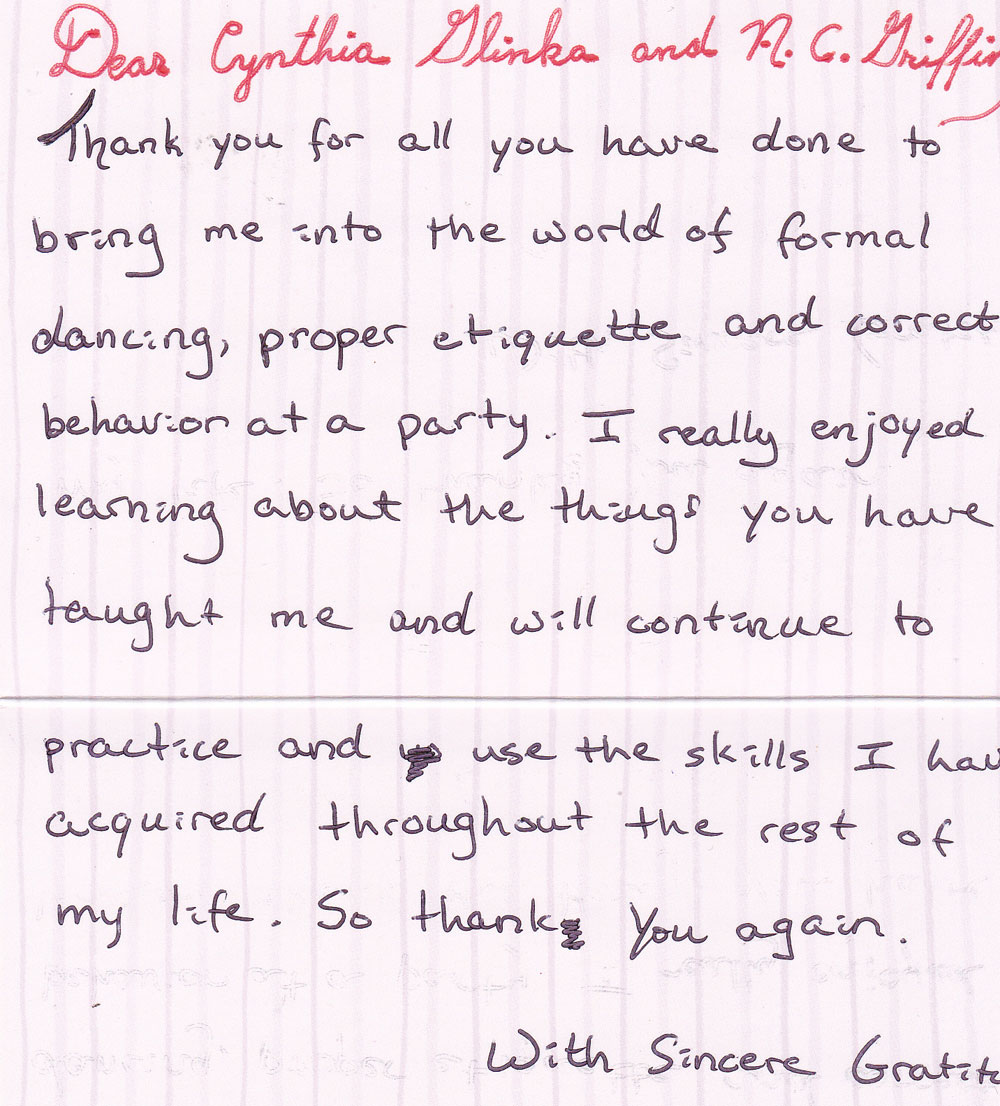 Dear Cynthia Glinka and N. C. Griffin
Thank you for all you have done to
bring me into the world of formal
dancing, proper etiquette and correct
behavior at a party. I really enjoyed
learning about the things you have
taught me and will continue to
practice and use the skills I hav
acquired throughout the rest of
my life. So thank you again.
With Sincere Gratit